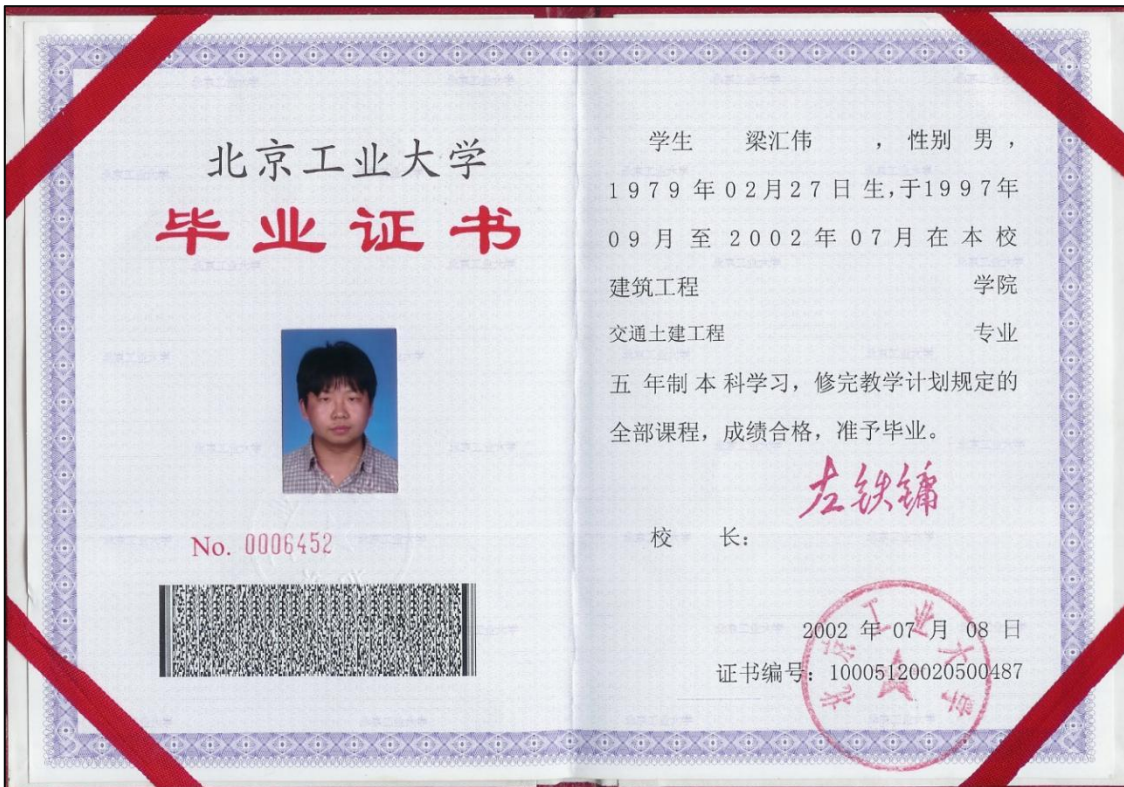 北京工业大学
毕业证书
No. 0006452
学生 梁汇伟 ，性别 男，
1979年02月27日 生,于1997年
09月 至 2002年07月 在 本 校
建筑工程 学院
交通土建工程 专业
五 年制 本 科学习，修完教学计划规定的
全部课程，成绩合格，准予毕业。
左铁镛
校 长：
北京工业大学
2002 年 07 月 08 日
证书编号：10005120020500487